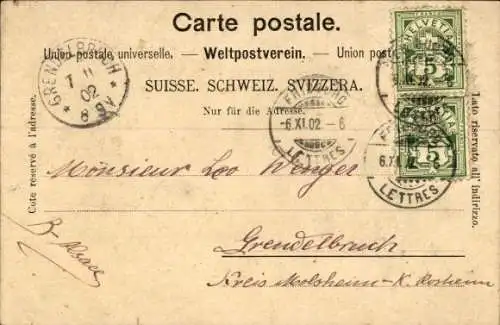 Carte postale.
Union postale universelle. — Weltpostverein. — Union post
SUISSE. SCHWEIZ. SVIZZERA.
Nur für die Adresse.
Côté réservé à l'adresse.
Lato riservato all' indirizzo.
GRENDELBRUCH
7 11
02
* 8-9V *
FRIBOURG
-6.XI.02-6
LETTRES
HELVETIA
5
FRIBOURG
LETTRES
5
LETTRES
Monsieur Leo Wenger
Grendelbruch
Kreis Molsheim - K. Rosheim